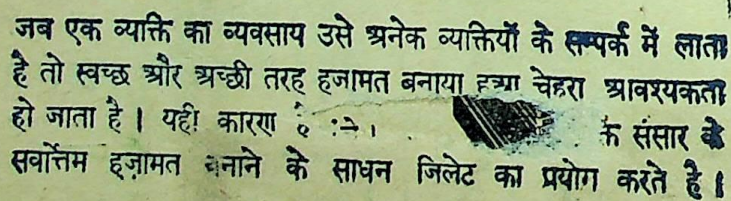 जब एक व्यक्ति का व्यवसाय उसे अनेक व्यक्तियों के सम्पर्क में लाता
है तो स्वच्छ और अच्छी तरह हजामत बनाया हुआ चेहरा आवश्यकता
हो जाता है । यही कारण है संसार के
सर्वोत्तम हज़ामत बनाने के साधन जिलेट का प्रयोग करते है ।